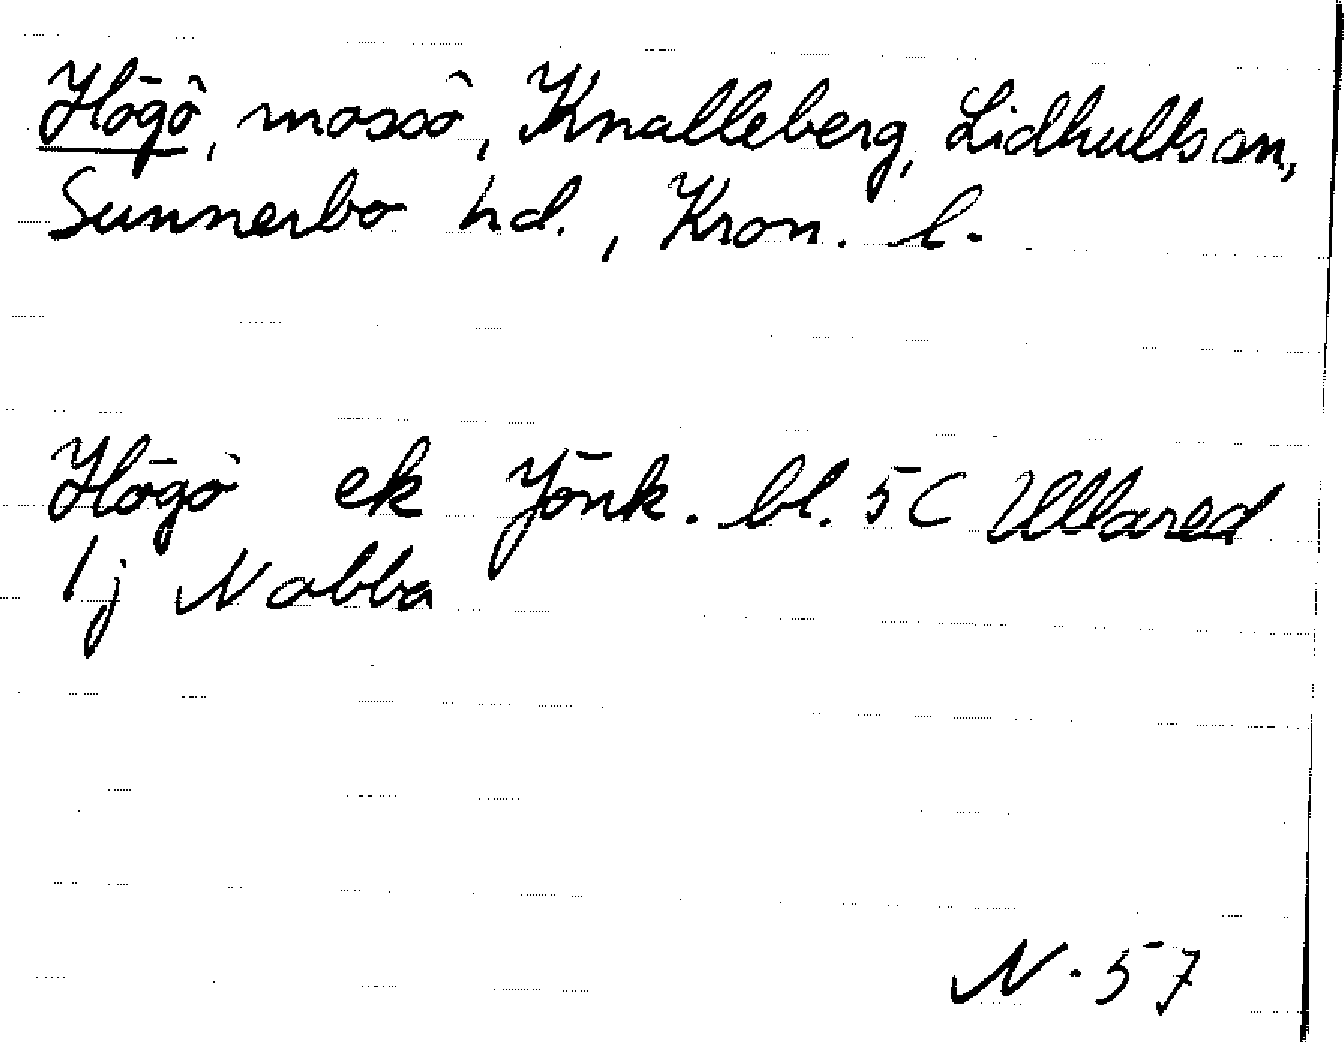 Högö, mossö, Knalleberg, Lidhults sn,
Sunnerbo hd., Kron. l.
Högö ek Jönk. bl. 5C Ullared
1j Nabba
N-57